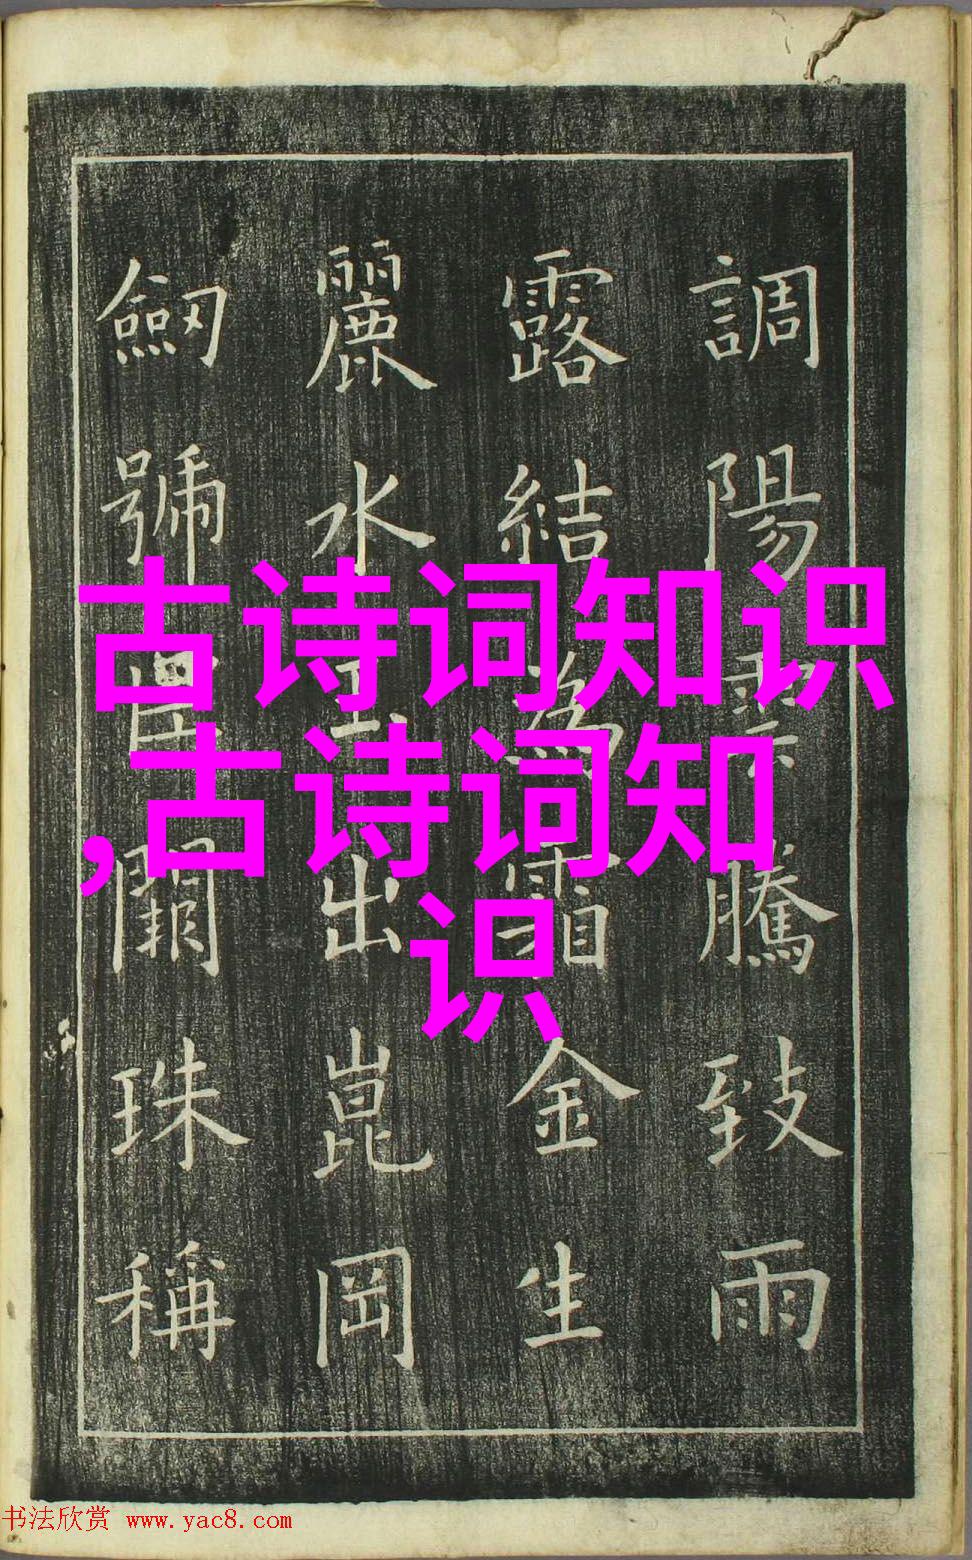 調陽雲騰致雨
露結為霜金生
麗水玉出崑岡
劒號巨闕珠稱
古诗词知识
,古诗词知
识
书法欣赏 www.yac8.com